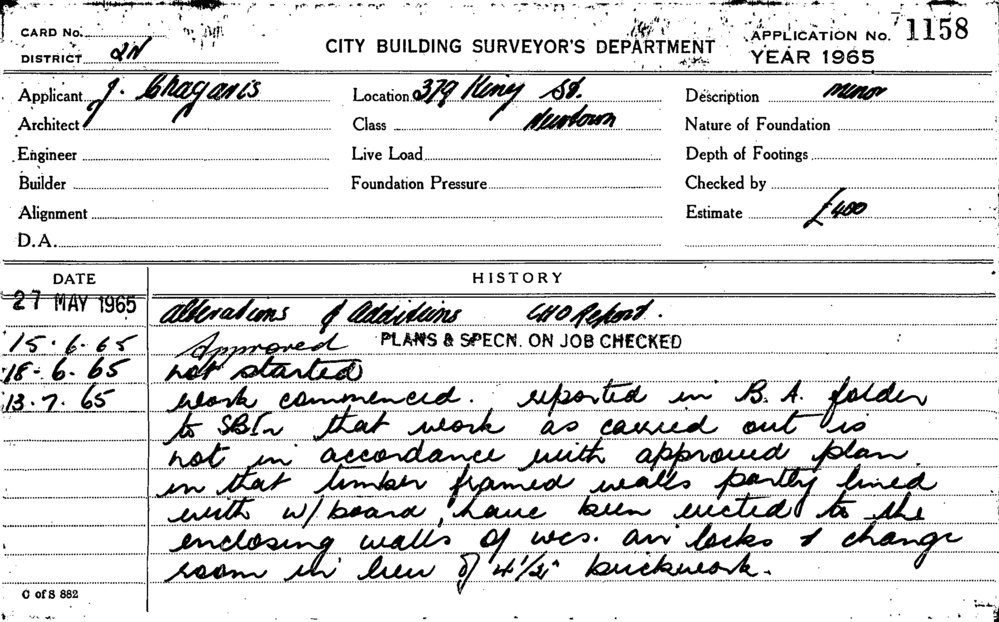 CARD No.
CITY BUILDING SURVEYOR'S DEPARTMENT
APPLICATION No. 1158
DISTRICT 2N
YEAR 1965
Applicant J. Chaganis
Location 379 King St.
Description minor
Architect
Class Newtown
Nature of Foundation
Engineer
Live Load
Depth of Footings
Builder
Foundation Pressure
Checked by
Alignment
Estimate £400
D.A.
DATE
HISTORY
27 MAY 1965 Alterations & Additions CHO Report.
15.6.65 Approved PLANS & SPECN. ON JOB CHECKED
18.6.65 not started
13.7.65 work commenced. reported in B.A. folder
to SBI that work as carried out is
not in accordance with approved plan
in that timber framed walls partly lined
with w/board, have been erected to the
enclosing walls of wcs. air locks & change
room in lieu of 4½" brickwork.
C of S 882